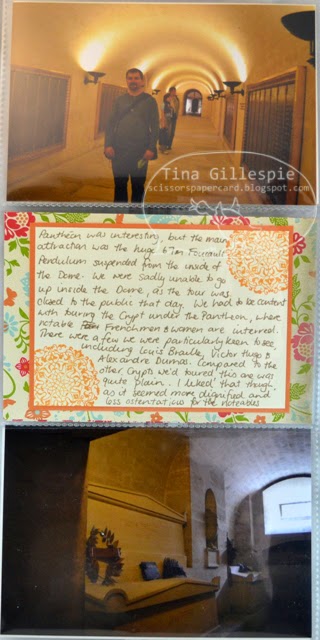 Tina Gillespie
scissorspapercard.blogspot.com
Pantheon was interesting, but the main
attraction was the huge 67m Foucault
Pendulum suspended from the inside of
the Dome. We were sadly unable to go
up inside the Dome, as the tour was
closed to the public that day. We had to be content
with touring the Crypt under the Pantheon, where
notable Frenchmen & women are interred.
There were a few we were particularly keen to see,
including Louis Braille, Victor Hugo &
Alexandre Dumas. Compared to the
other Crypts we'd toured this one was
quite plain. I liked that though,
as it seemed more dignified and
less ostentatious for the noteables